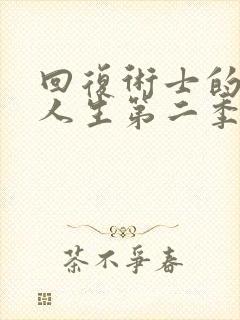 回復術士的
人生第二季
茶不爭春